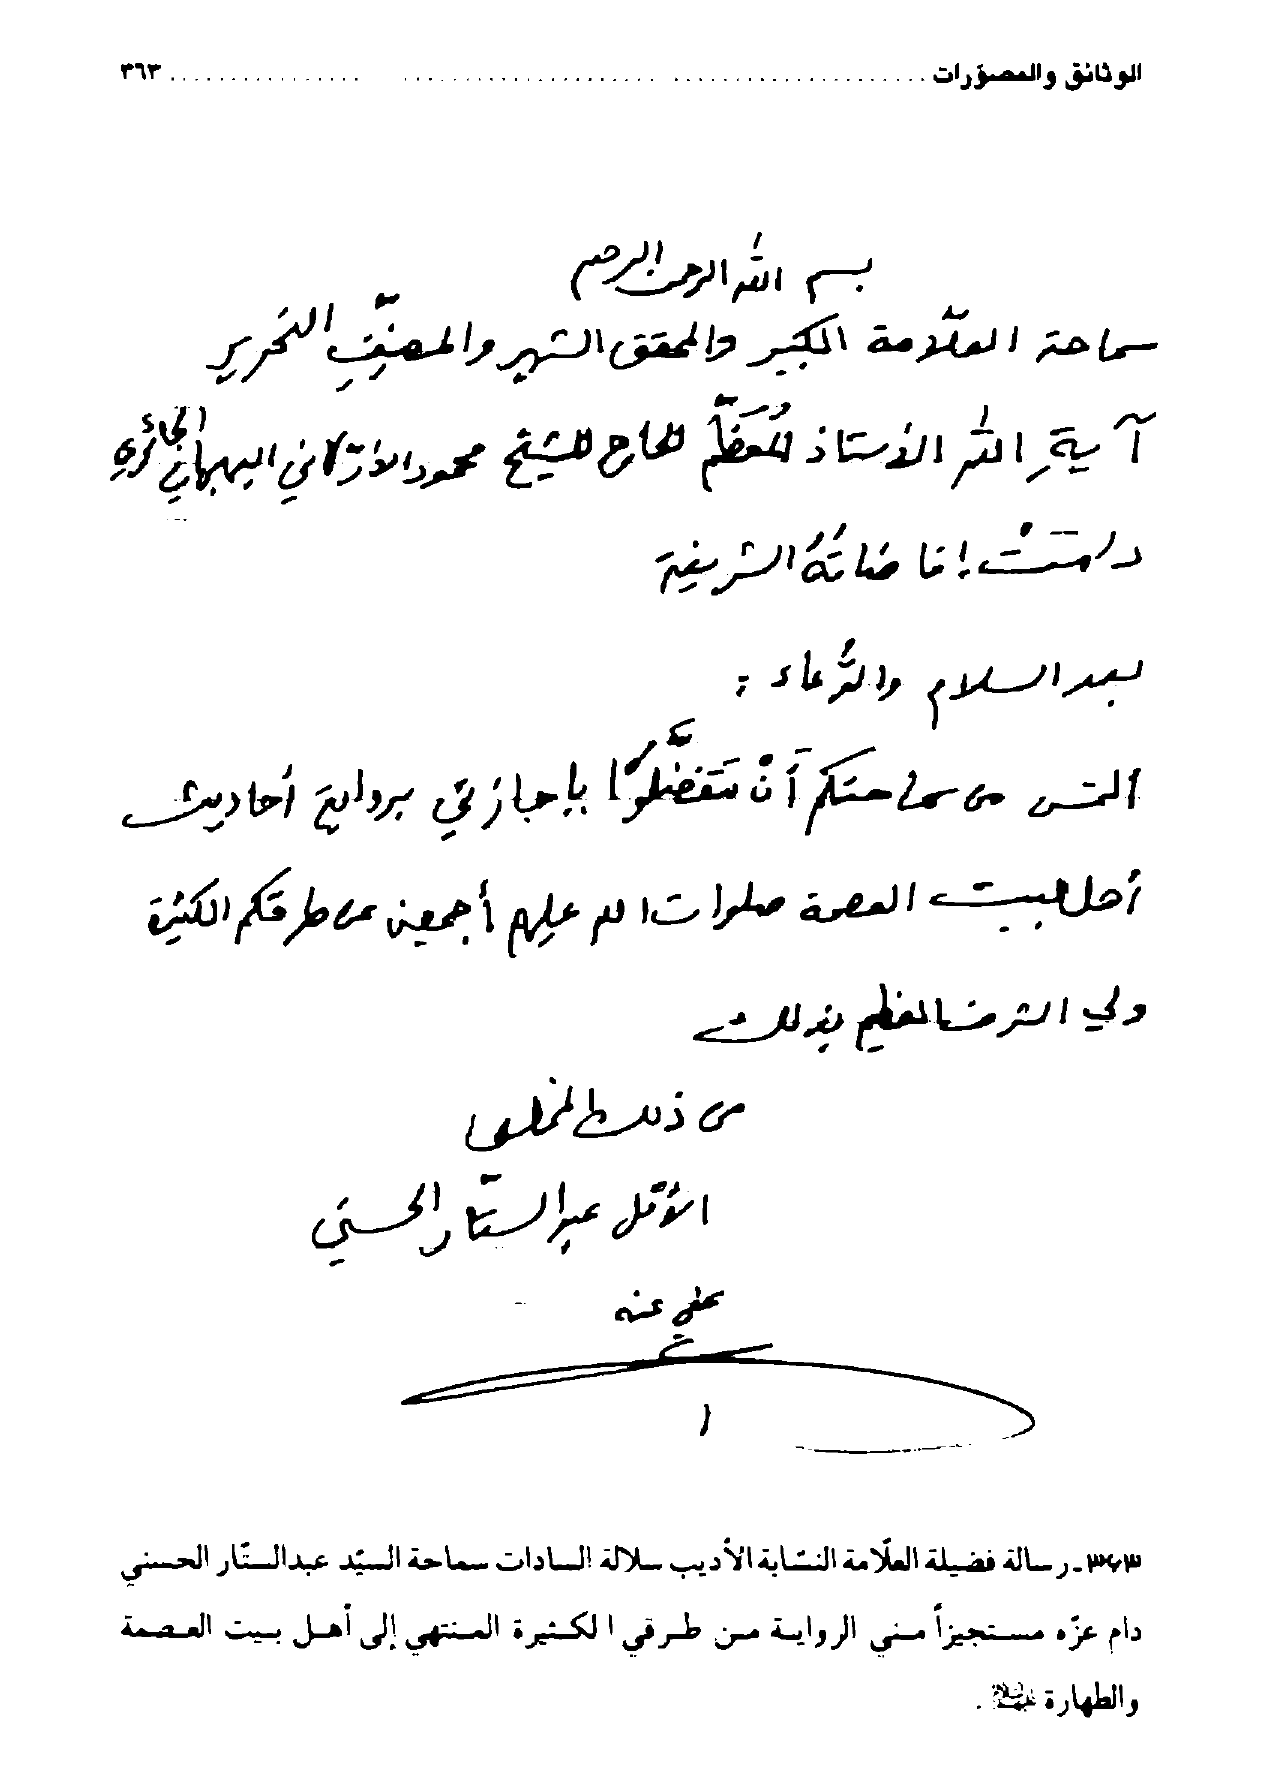 الوثائق والمصوّرات ........................................ ٣٦٣
بسم الله الرحمن الرحيم
سماحة العلّامة الكبير والمحقق الشهير والمصنّفِ النحرير
آيةِ الله الأستاذ المُعَظَّم الحاج الشيخ محمود الأرگاني البهبهاني الحائري
دامَتْ إفاضاتُهُ الشريفة
بعد السلام والدُّعاء :
ألتمس من سماحتكم أَنْ تتفضَّلوا بإجازتي برواية أحاديث
أهل البيت العصمة صلوات الله عليهم أجمعين عن طرقكم الكثيرة
ولي الشرف العظيم بذلك
من ذلك المخلص
الأقل عبد الستّار الحسني
عفي عنه
٣٦٣ـ رسالة فضيلة العلّامة النسّابة الأديب سلالة السادات سماحة السيّد عبدالستّار الحسني
دام عزّه مستجيزاً مني الرواية من طرقي الكثيرة المنتهي إلى أهل بيت العصمة
والطهارة عليهم السلام .